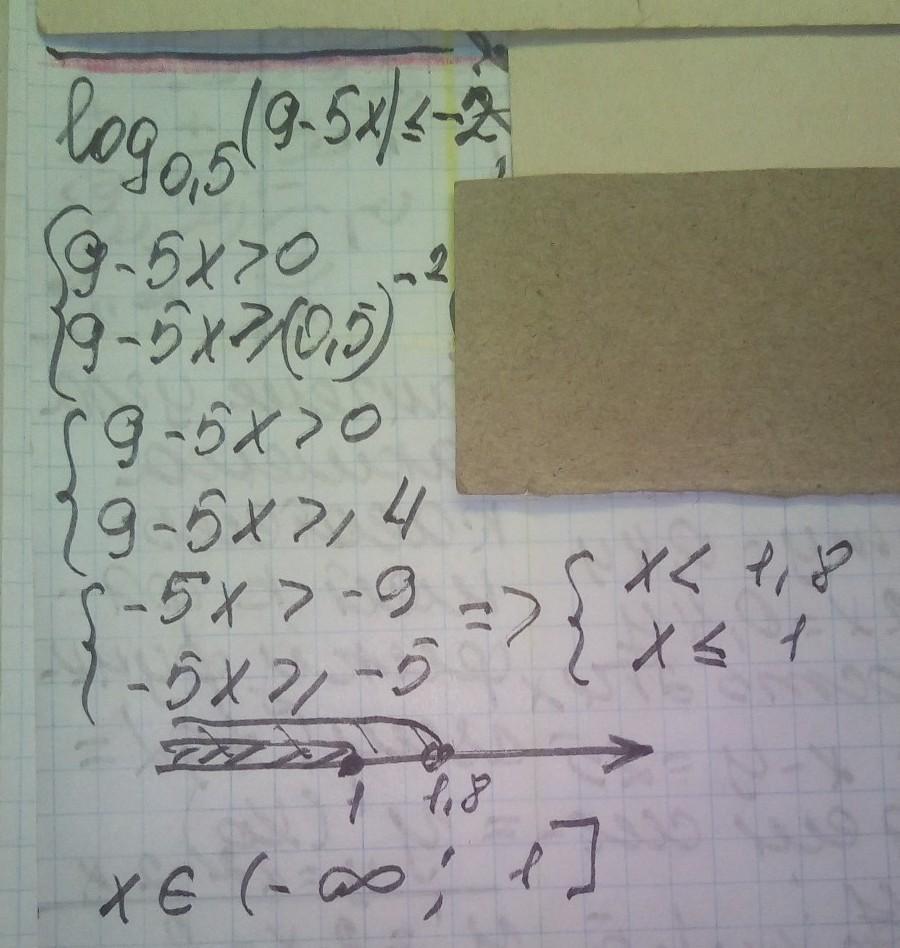 log₀,₅(9-5x)≤-2
{9-5x>0
{9-5x≥(0,5)⁻²
{9-5x>0
{9-5x≥4
{-5x>-9 => {x<1,8
{-5x≥-5 {x≤1
1 1,8
x∈(-∞; 1]